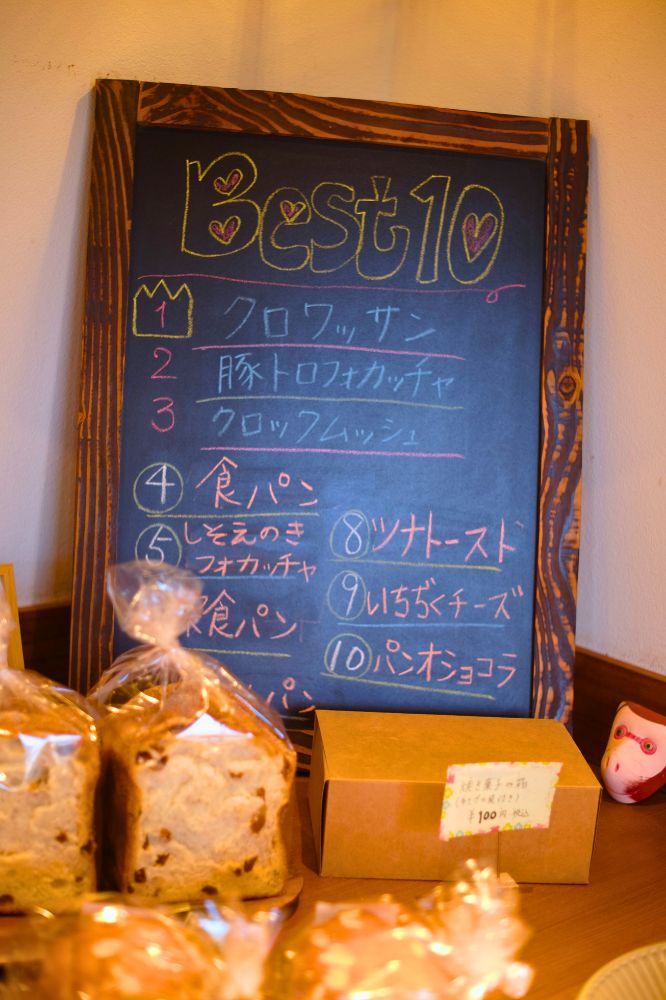 Best10
1 クロワッサン
2 豚トロフォカッチャ
3 クロックムッシュ
4 食パン
5 しそえのき
フォカッチャ
食パン
パン
8 ツナトースト
9 いちぢくチーズ
10 パンオショコラ
焼き菓子の箱
¥100円税込